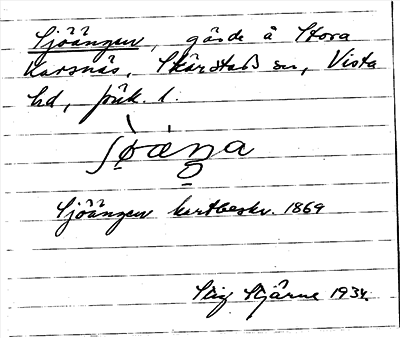 Sjöängen, gärde å Stora
Karsnäs, Skärstads sn, Vista
hd, Jönk. l.
Sjöängen kartbeskr. 1869
Stig Stjärne 1934.